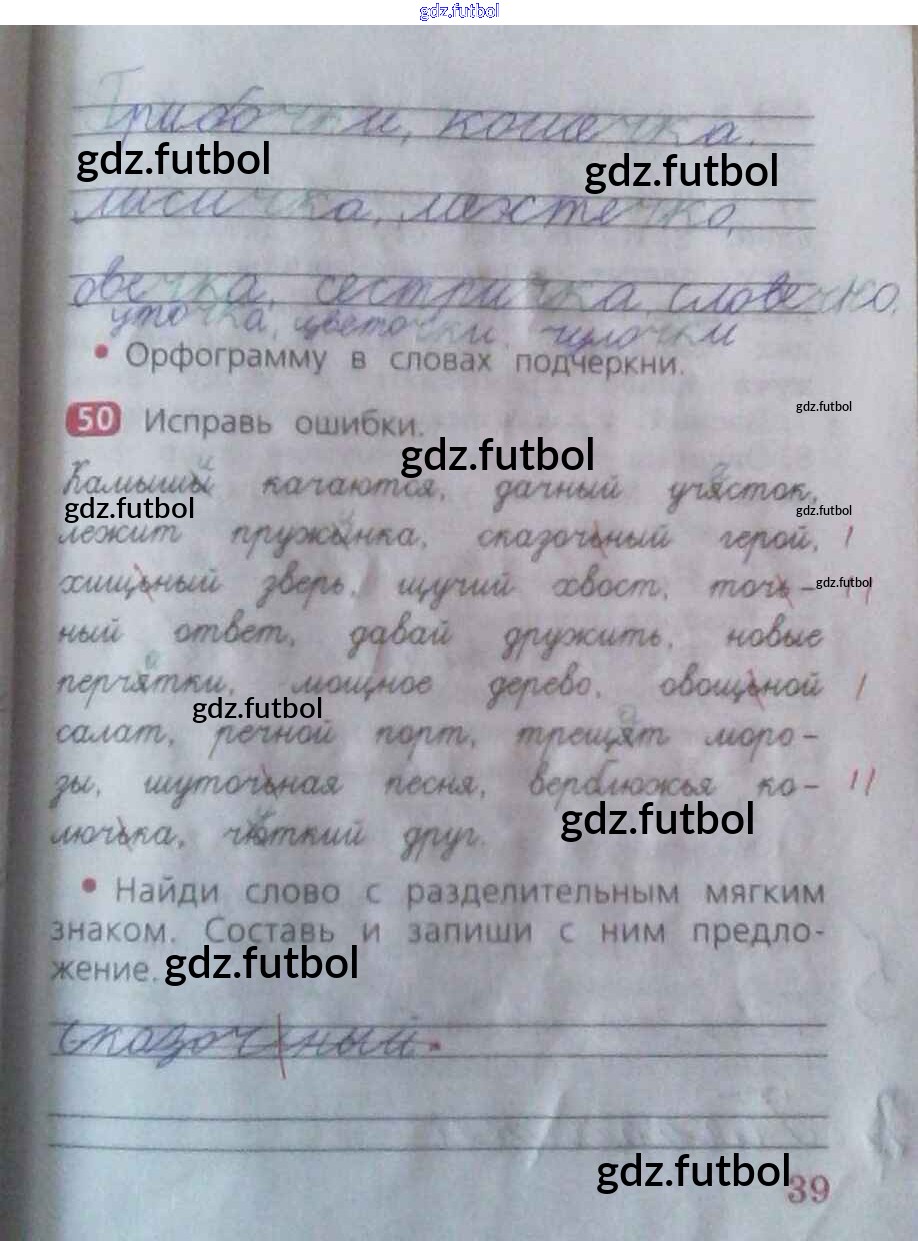 gdz.futbol
Грибочки, кошечка,
gdz.futbol gdz.futbol
лисичка, местечко,
овечка, сестричка, словечко,
уточка, цветочки, чулочки
• Орфограмму в словах подчеркни.
gdz.futbol
50 Исправь ошибки.
gdz.futbol
Камышы качаются, дачный учясток,
gdz.futbol gdz.futbol
лежит пружынка, сказочьный герой,
хищьный зверь, щучий хвост, точь-
gdz.futbol
ный ответ, давай дружить, новые
перчятки, мощное дерево, овощьной
gdz.futbol
салат, речной порт, трещят моро-
зы, шуточьная песня, верблюжья ко-
gdz.futbol
лючька, чюткий друг.
• Найди слово с разделительным мягким
знаком. Составь и запиши с ним предло-
жение.
gdz.futbol
Сказочный.
gdz.futbol
39